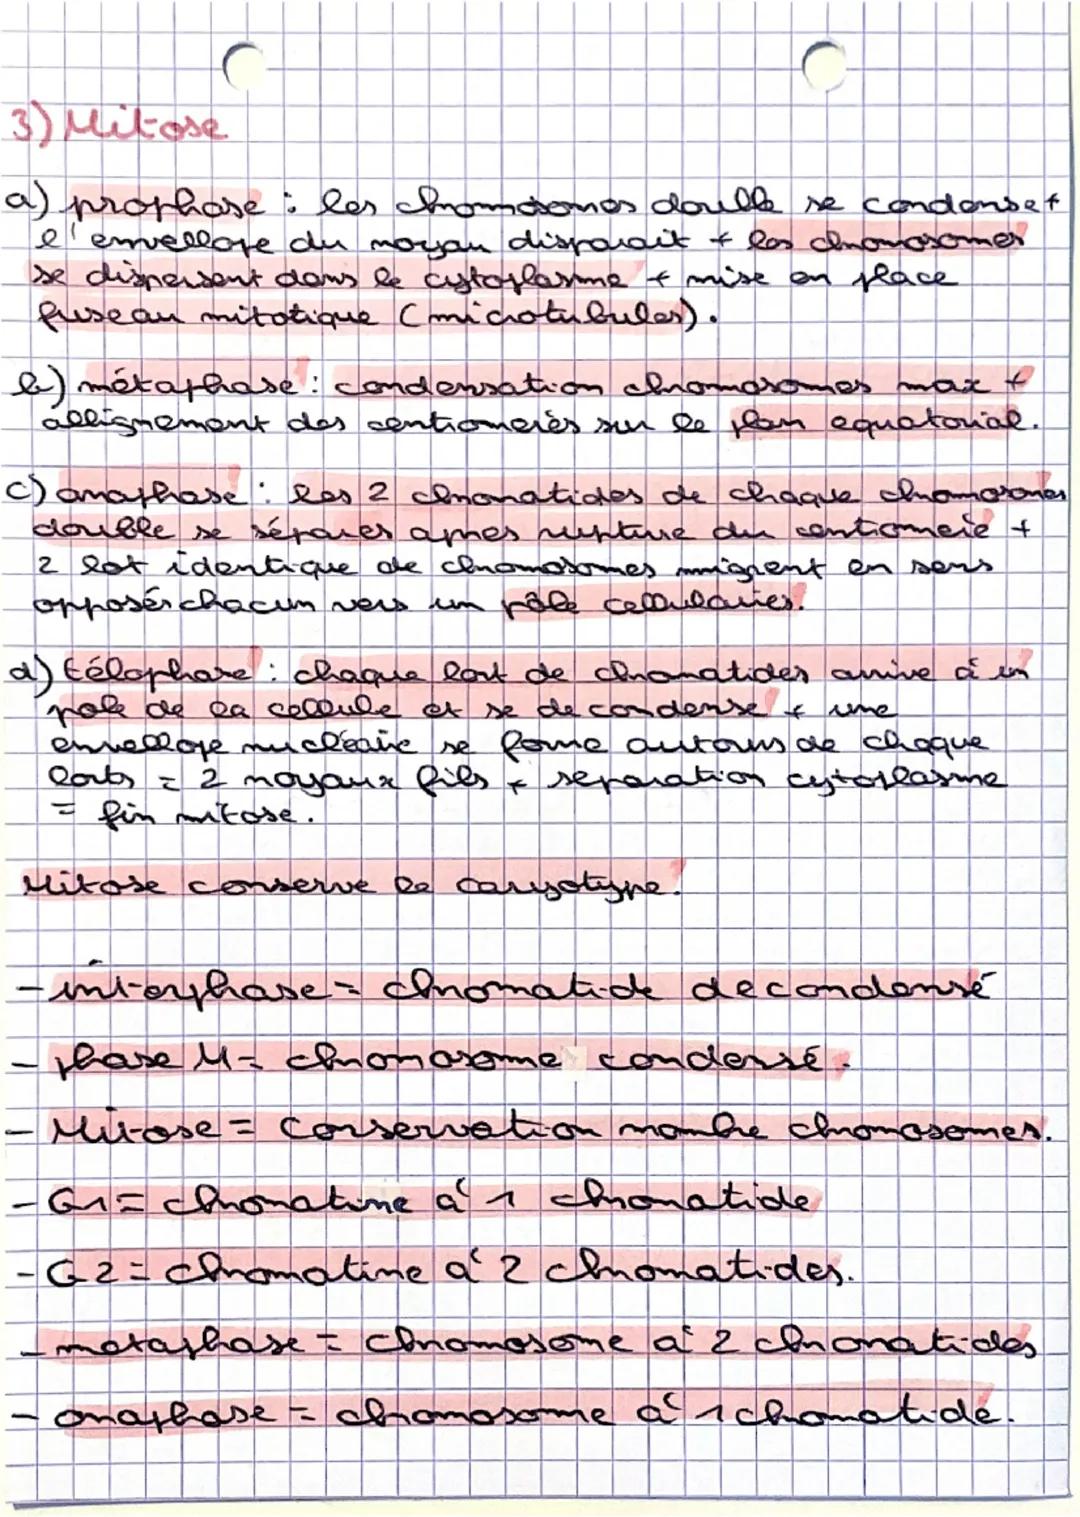 3) Mitose
a) prophase : les chromosomes double se condense +
l'envellope du noyau disparait + les chromosomes
se dispersent dans le cytoplasme + mise en place
fuseau mitotique (microtubules).
b) métaphase : condensation chromosomes max +
allignement des centromerès sur le plan equatorial.
c) anaphase : les 2 chromatides de chaque chromosomes
double se séparés apres rupture du centromere +
2 lot identique de chromosomes migrent en sens
opposés chacun vers un pôle cellulaires.
d) télophase : chaque lort de chromatides arrive à un
pole de la cellule et se decondense + une
envellope nucléaire se forme autours de chaque
lorts = 2 noyaux fils + separation cytoplasme
= fin mitose.
Mitose conserve le caryotype.
- interphase = chromatide decondensé
- phase M = chromosome condensé.
- Mitose = conservation nombre chromosomes.
- G1 = chromatine à 1 chromatide
- G2 = chromatine à 2 chromatides.
- metaphase = chromosome à 2 chromatides
- anaphase = chromosome à 1 chromatide.